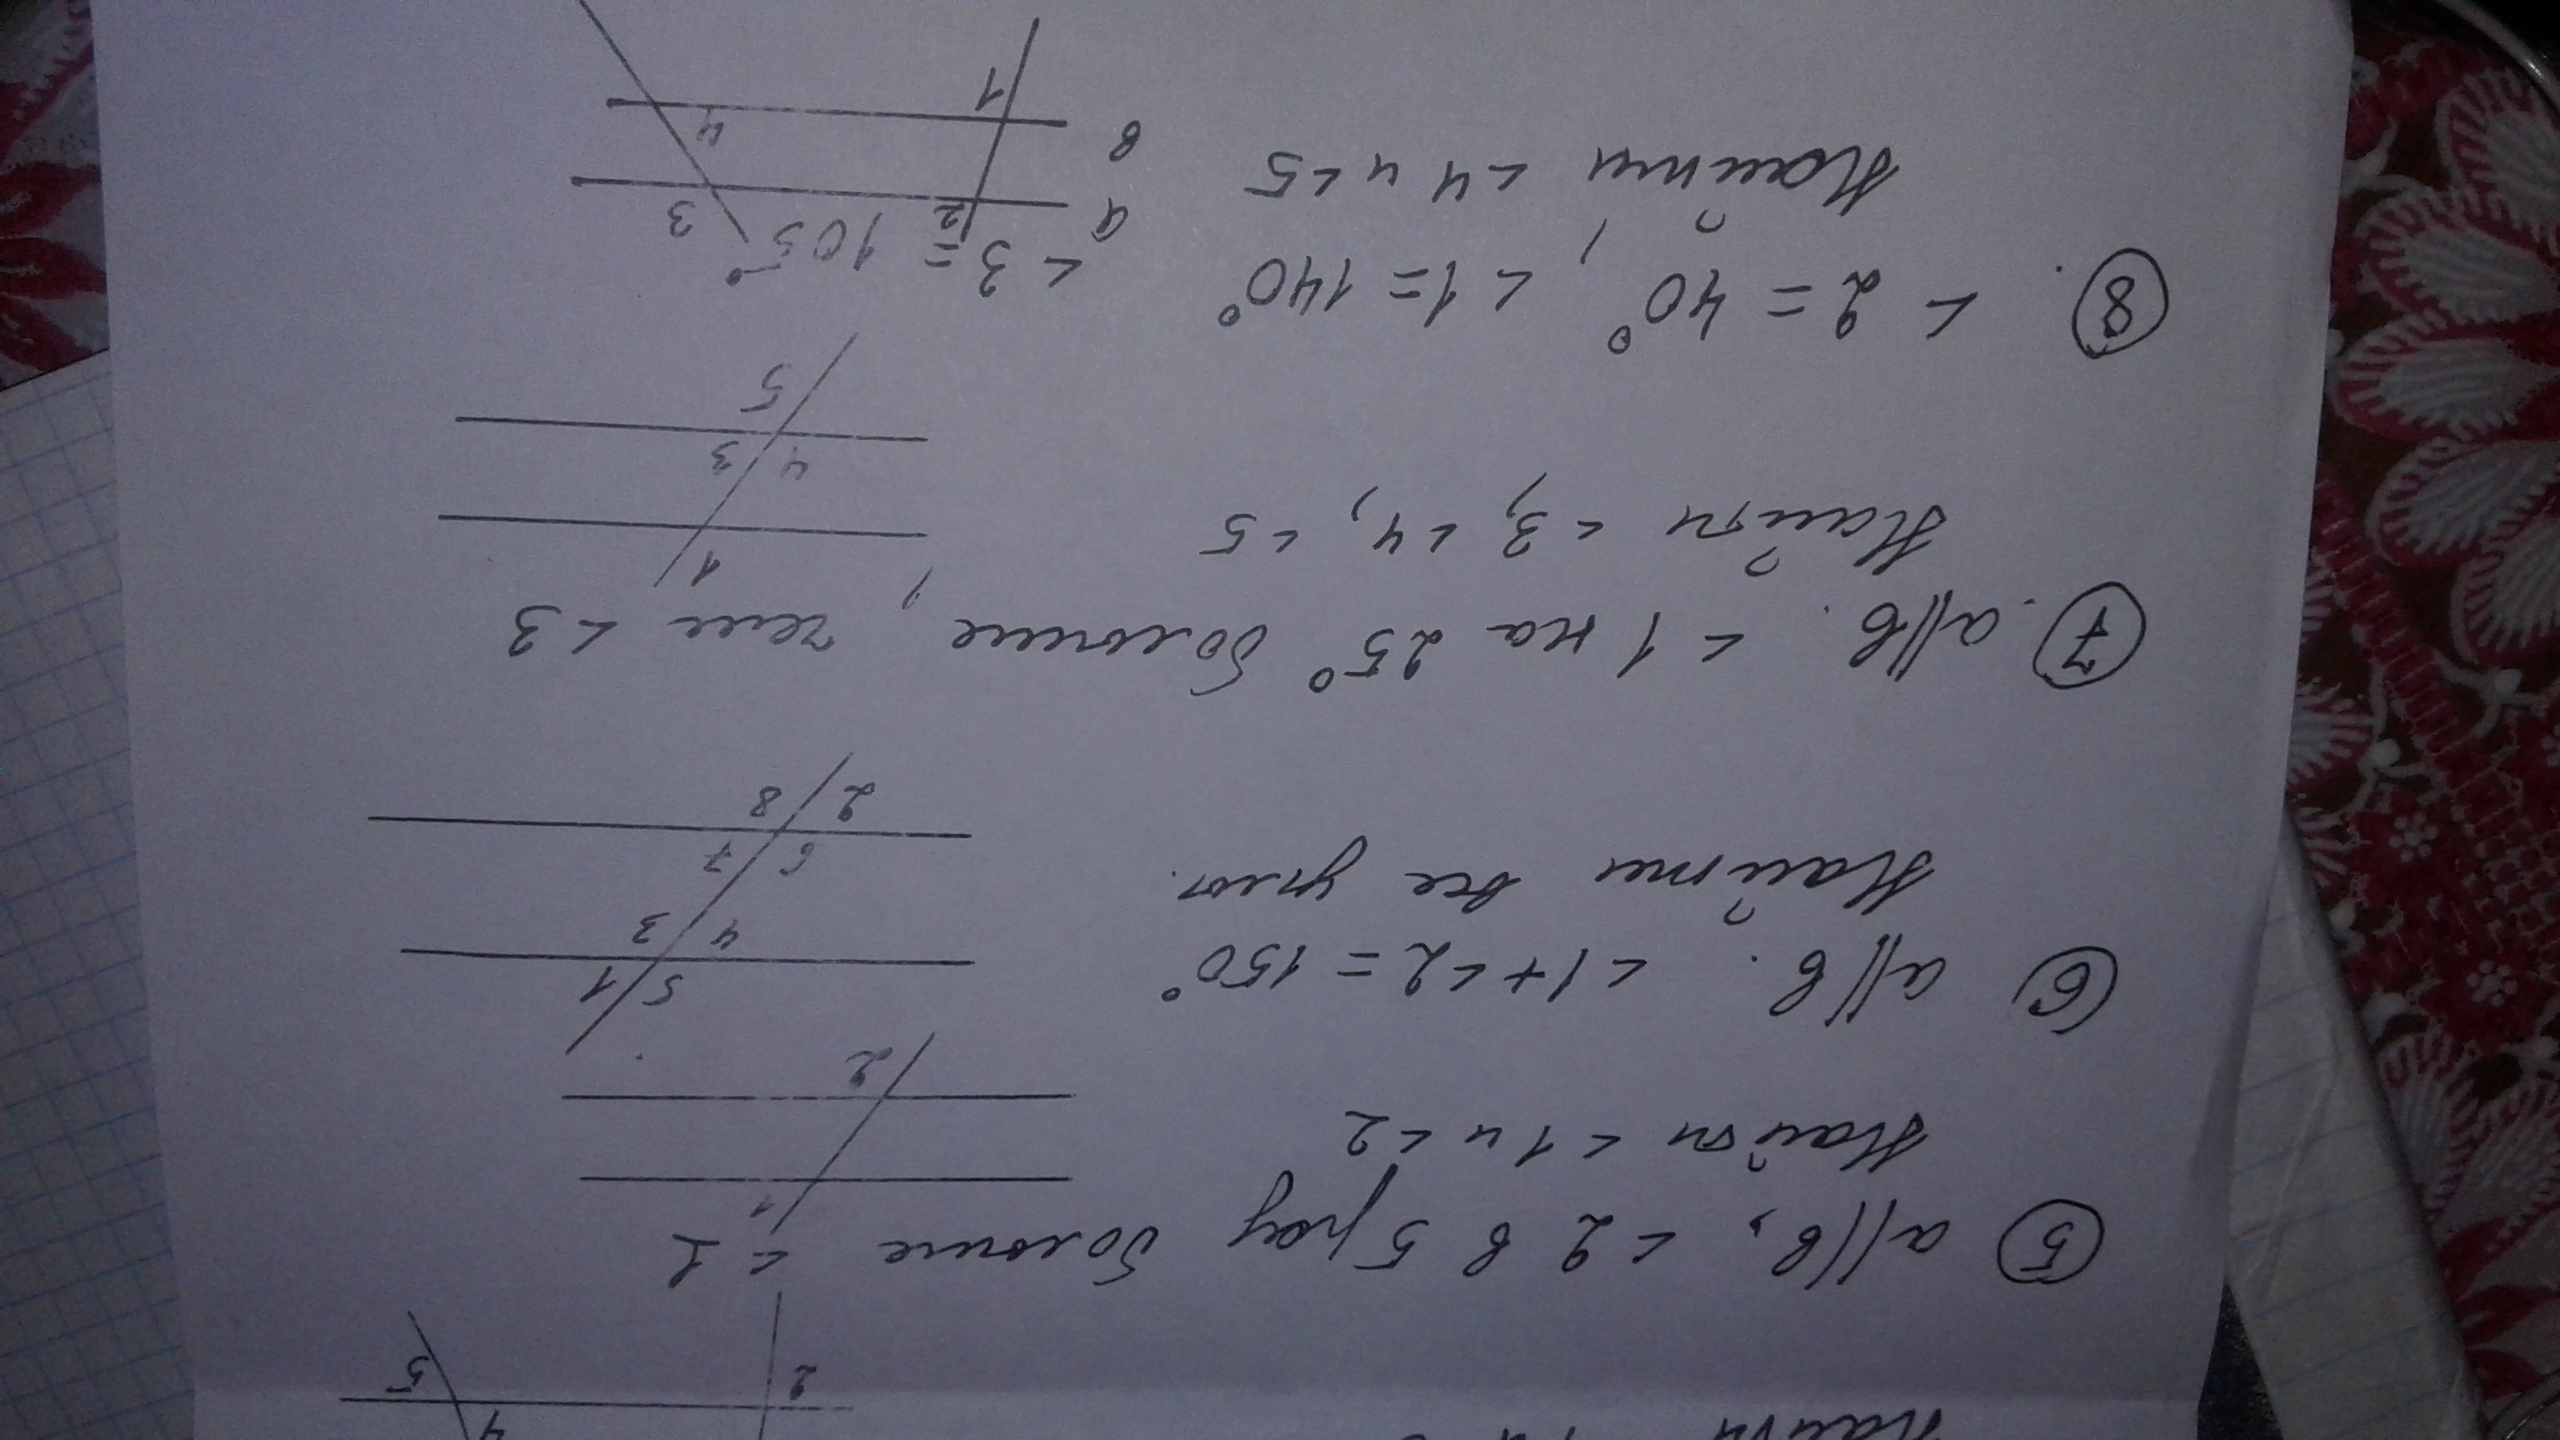 Найти
4
5
2
⑤ a||b, <2 в 5 раз больше <1
Найти <1 и <2
1
2
⑥ a||b. <1+<2=150°
Найти все углы.
5 1
4 3
6 7
2 8
⑦. a||b. <1 на 25° больше, чем <3
Найти <3, <4, <5
1
4 3
5
⑧. <2=40°, <1=140°
<3=105°
Найти <4 и <5
a 2 3
в 4
1